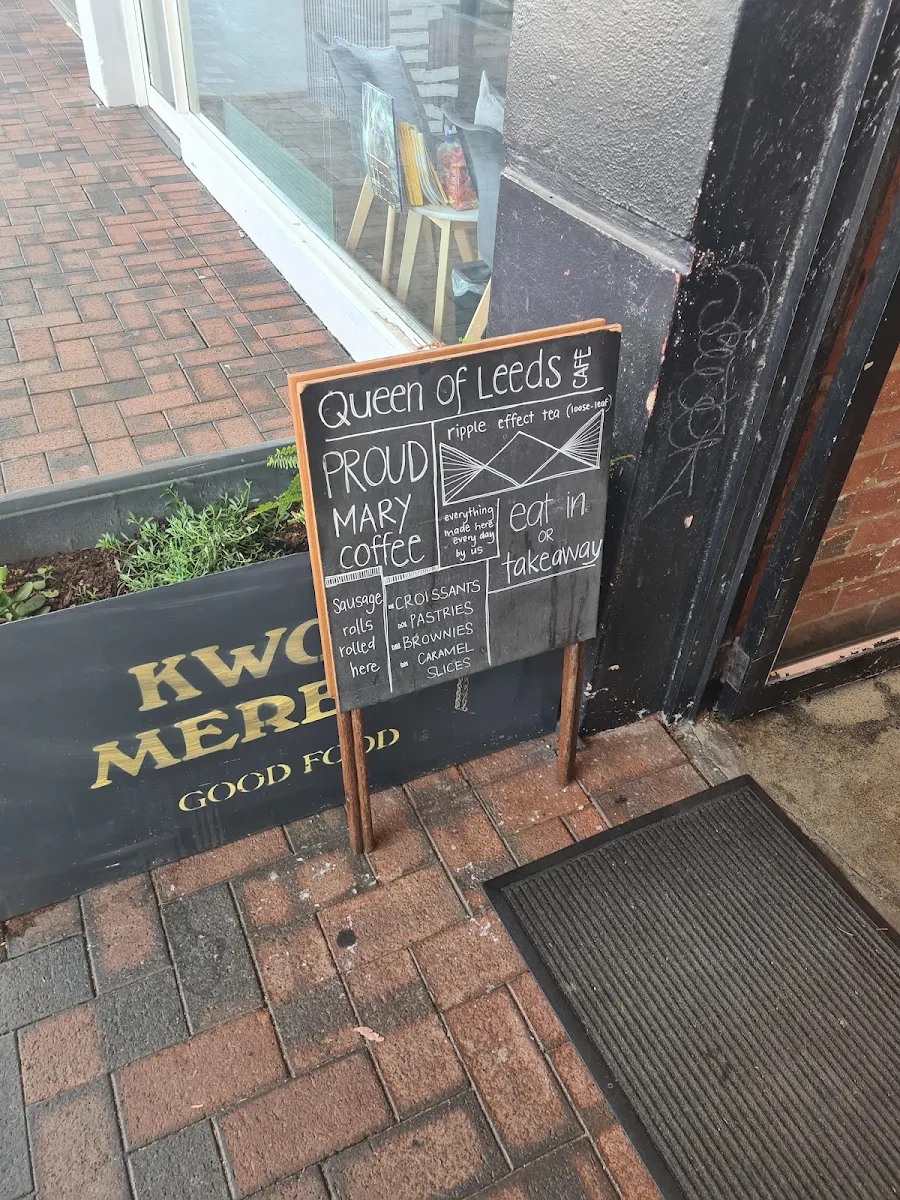 Queen of Leeds CAFE
PROUD
MARY
coffee
ripple effect tea (loose-leaf)
everything
made here
every day
by us
eat in
OR
takeaway
sausage
rolls
rolled
here
CROISSANTS
PASTRIES
BROWNIES
CARAMEL
SLICES
GOOD FOOD